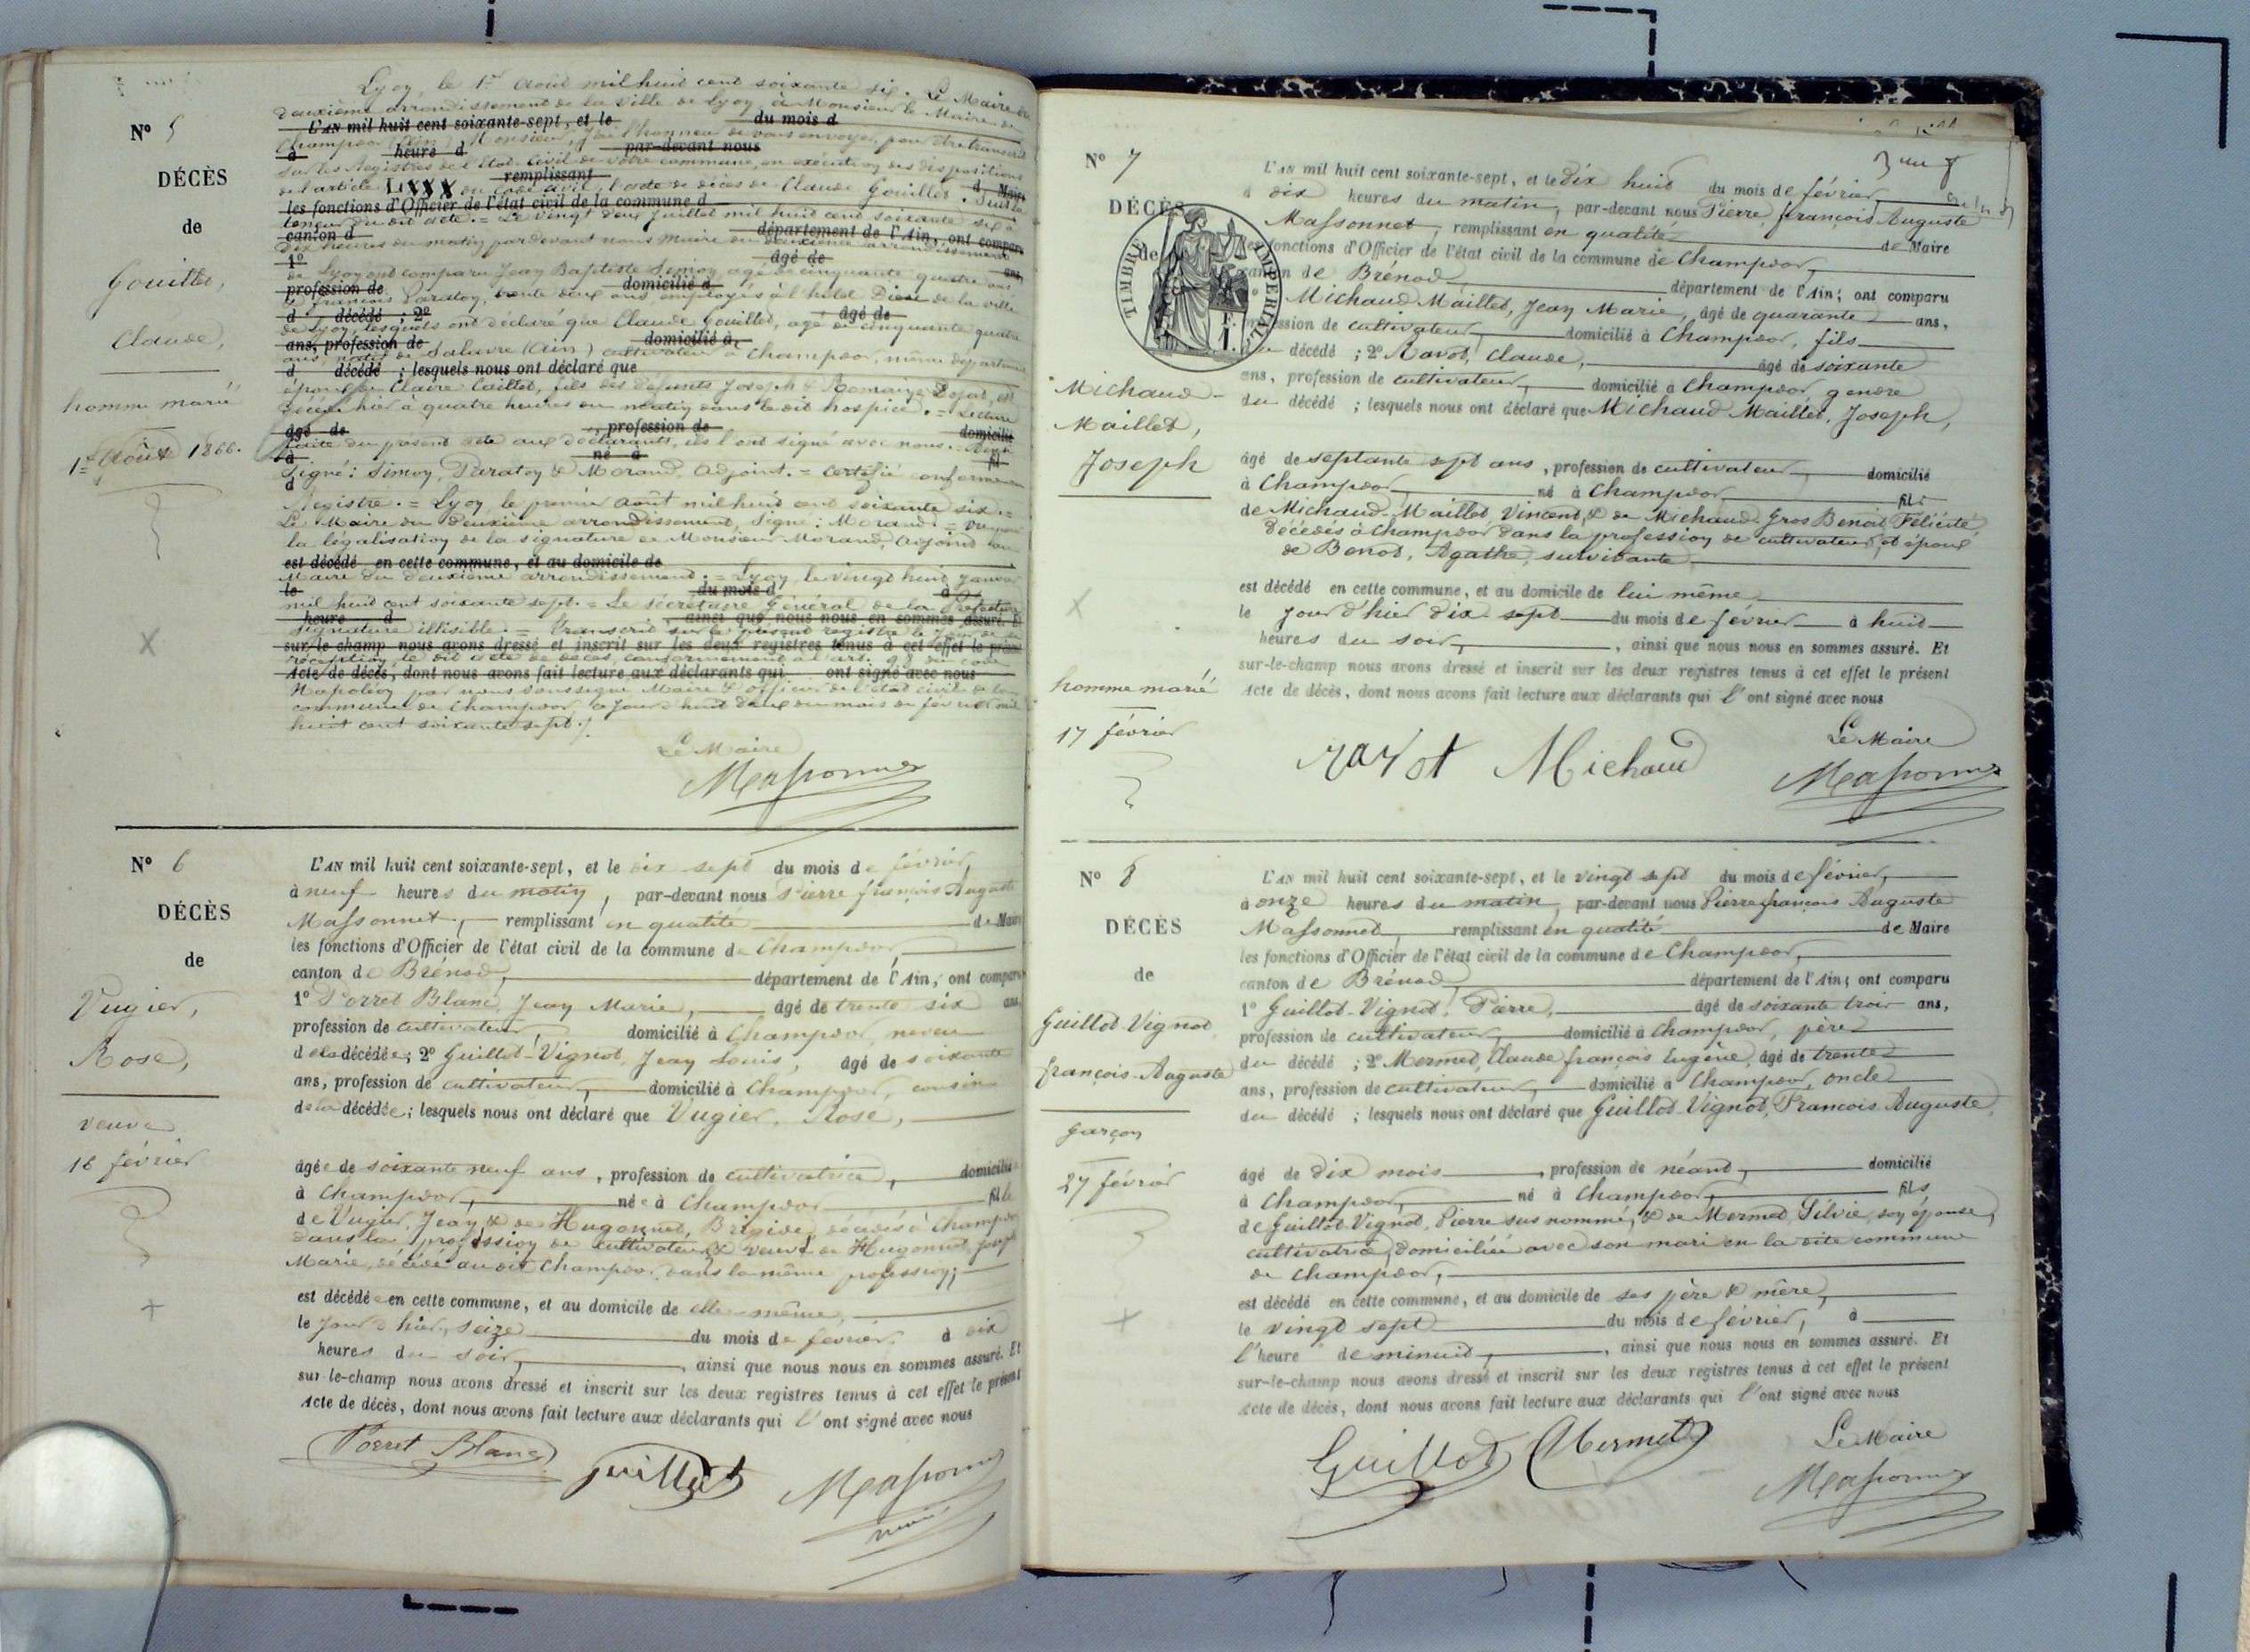 Nº 5
DÉCÈS
de
Gouillet,
Claude,
homme marié
1er Août 1866.
Lyon, le 1er Août mil huit cent soixante six. Le Maire du
deuxième arrondissement de la Ville de Lyon, à Monsieur le Maire de
L'AN mil huit cent soixante-sept, et le du mois d
Champdor (Ain) Monsieur, J'ai l'honneur de vous envoyer, pour être transcrit
à heure d par-devant nous
sur les Registres de l'État civil de votre commune, en exécution des dispositions
remplissant d Maire
de l'article LXXX du Code civil, l'acte de décès de Claude Gouillet. Suit la
les fonctions d'Officier de l'état civil de la commune d
teneur du dit acte. = Le vingt deux Juillet mil huit cent soixante six à
canton d département de l'Ain, ont comparu
dix heures du matin par devant nous Maire du deuxième arrondissement
1º âgé de ans,
de Lyon ont comparu Jean Baptiste Simon, agé de cinquante quatre ans
profession de domicilié à
& françois Paraton, trente deux ans, employés à l'hôtel Dieu de la ville
d décédé ; 2º âgé de
de Lyon, lesquels ont déclaré que Claude Gouillet, agé de cinquante quatre
ans, profession de domicilié à
ans, natif de Salavre (Ain) cultivateur à Champdor, même département
d décédé ; lesquels nous ont déclaré que
époux de Claire Caillet, fils des défunts Joseph & Romaine Dojat, est
décédé hier à quatre heures du matin dans le dit hospice. = Lecture
âgé de , profession de domicilié
faite du présent acte aux déclarants, ils l'ont signé avec nous.
à né à fil
Signé: Simon, Paraton & Morand, Adjoint. = Certifié conforme au
d
Registre. = Lyon le premier Août mil huit cent soixante six. =
Le Maire du deuxième arrondissement, Signé: Morand. = Vu pour
la légalisation de la signature de Monsieur Morand, Adjoint au
est décédé en cette commune, et au domicile de
Maire du deuxième arrondissement. = Lyon, le vingt huit Janvier
le du mois d à
mil huit cent soixante sept. = Le Secrétaire Général de la Préfecture
heure d , ainsi que nous nous en sommes assuré. Et
signature illisible. = Transcrit sur le présent registre le jour de sa
sur-le-champ nous avons dressé et inscrit sur les deux registres tenus à cet effet le présent
réception, le dit acte de décès, conformément à l'art. 98 du code
Acte de décès, dont nous avons fait lecture aux déclarants qui ont signé avec nous
Napoléon par nous soussigné Maire & officier de l'état civil de la
commune de Champdor, ce Jourd'huit deux du mois de février mil
huit cent soixante sept./.
Le Maire
Massonnet
Nº 6
DÉCÈS
de
Vugier,
Rose,
veuve
16 février
L'AN mil huit cent soixante-sept, et le dix sept du mois de février,
à neuf heures du matin, par-devant nous Pierre françois Auguste
Massonnet, remplissant en qualité de Maire
les fonctions d'Officier de l'état civil de la commune de Champdor,
canton de Brénod, département de l'Ain; ont comparu
1º Porret Blanc, Jean Marie, âgé de trente six ans,
profession de cultivateur, domicilié à Champdor, neveu
de la décédée; 2º Guillot-Vignot, Jean Louis, âgé de soixante
ans, profession de cultivateur, domicilié à Champdor, cousin
de la décédée; lesquels nous ont déclaré que Vugier, Rose,
âgée de soixante neuf ans, profession de cultivatrice, domiciliée
à Champdor, née à Champdor fille
de Vugier, Jean & de Hugonnet, Brigide, décédés à Champdor
dans la profession de cultivateurs, & veuve de Hugonnet Joseph
Marie, décédé au dit Champdor, dans la même profession;
est décédée en cette commune, et au domicile de elle même,
le Jour d'hier, seize du mois de février, à dix
heures du soir, , ainsi que nous nous en sommes assuré. Et
sur-le-champ nous avons dressé et inscrit sur les deux registres tenus à cet effet le présent
Acte de décès, dont nous avons fait lecture aux déclarants qui l'ont signé avec nous
Porret Blanc Guillot Massonnet
maire
Nº 7
DÉCÈS
de
TIMBRE IMPÉRIAL
1 F.
Michaud-
Maillet,
Joseph
homme marié
17 février
L'AN mil huit cent soixante-sept, et le dix huit du mois de février,
à dix heures du matin, par-devant nous Pierre françois Auguste
Massonnet, remplissant en qualité de Maire
les fonctions d'Officier de l'état civil de la commune de Champdor,
canton de Brénod, département de l'Ain; ont comparu
1º Michaud Maillet, Jean Marie, âgé de quarante ans,
profession de cultivateur, domicilié à Champdor, fils
du décédé ; 2º Ravot, Claude, âgé de soixante
ans, profession de cultivateur, domicilié à Champdor, gendre
du décédé ; lesquels nous ont déclaré que Michaud Maillet, Joseph,
âgé de septante sept ans, profession de cultivateur, domicilié
à Champdor, né à Champdor, fils
de Michaud-Maillet Vincent, & de Michaud-Gros Benoit, Félicité
décédés à Champdor dans la profession de cultivateurs, et époux
de Benod, Agathe, survivante
est décédé en cette commune, et au domicile de lui même
le Jour d'hier dix sept du mois de février à huit
heures du soir, , ainsi que nous nous en sommes assuré. Et
sur-le-champ nous avons dressé et inscrit sur les deux registres tenus à cet effet le présent
Acte de décès, dont nous avons fait lecture aux déclarants qui l'ont signé avec nous
Le Maire
ravot Michaud Massonnet
Nº 8
DÉCÈS
de
Guillot Vignot
françois-Auguste
garçon
27 février
L'AN mil huit cent soixante-sept, et le vingt sept du mois de février,
à onze heures du matin, par-devant nous Pierre françois Auguste
Massonnet, remplissant en qualité de Maire
les fonctions d'Officier de l'état civil de la commune de Champdor,
canton de Brénod, département de l'Ain; ont comparu
1º Guillot-Vignot, Pierre, âgé de soixante trois ans,
profession de cultivateur, domicilié à Champdor, père
du décédé ; 2º Mermet, Claude françois Eugène, âgé de trente
ans, profession de cultivateur, domicilié à Champdor, oncle
du décédé ; lesquels nous ont déclaré que Guillot-Vignot, François Auguste,
âgé de dix mois, profession de néant, domicilié
à Champdor, né à Champdor, fils
de Guillot Vignot, Pierre sus nommé, & de Mermet, Silvie, son épouse,
cultivatrice, domiciliée avec son mari en la dite commune
de Champdor,
est décédé en cette commune, et au domicile de ses père & mère,
le vingt sept du mois de février, à
l'heure de minuit, , ainsi que nous nous en sommes assuré. Et
sur-le-champ nous avons dressé et inscrit sur les deux registres tenus à cet effet le présent
Acte de décès, dont nous avons fait lecture aux déclarants qui l'ont signé avec nous
Le Maire
Guillot Mermet Massonnet